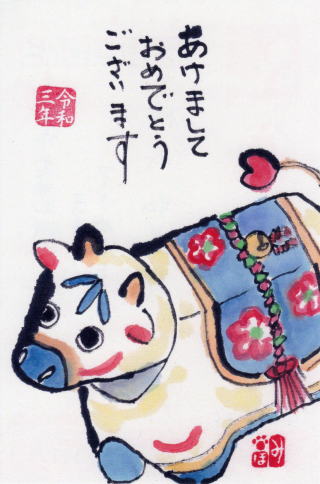 あけまして
おめでとう
ございます
令和
三年